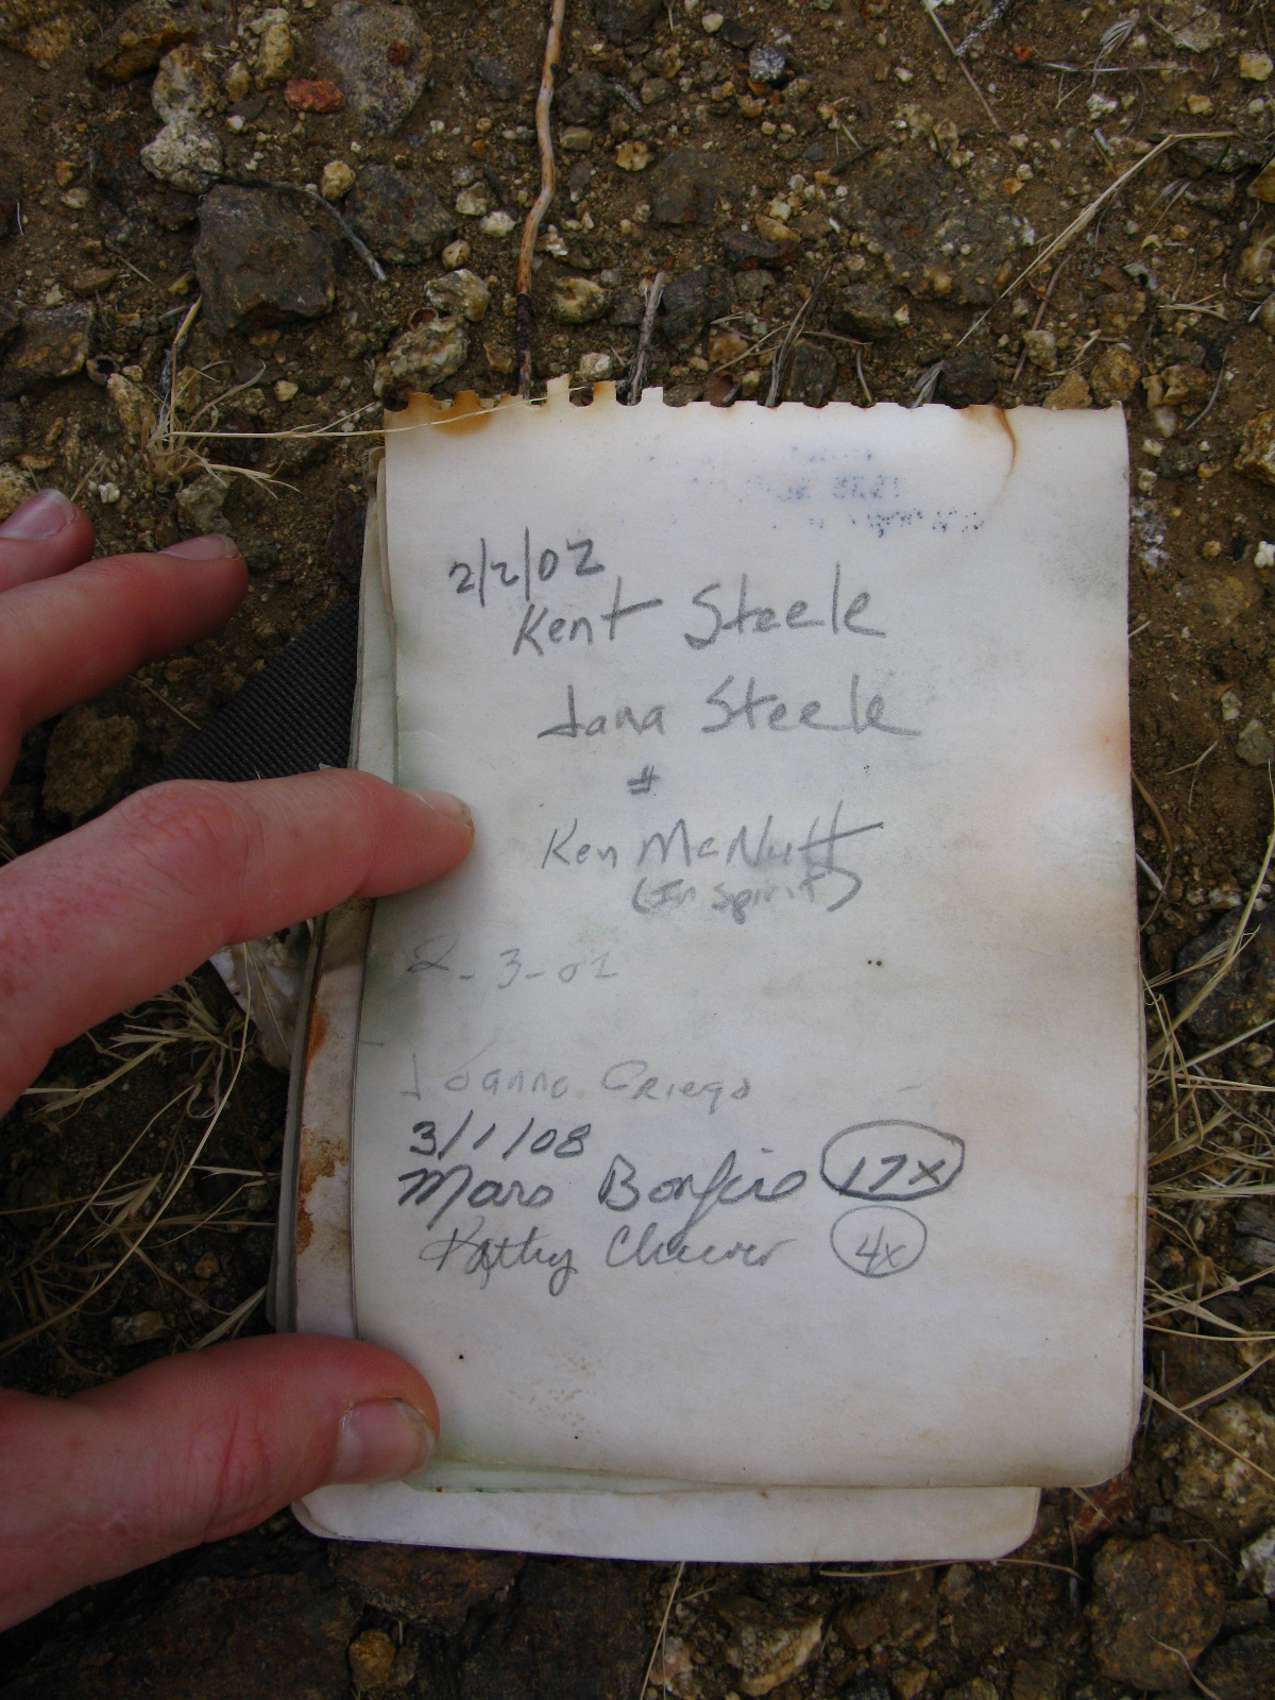 2/2/02
Kent Steele
Jana Steele
#
Ken McNutt
(In Spirit)
2-3-02
Joanna Griego
3/1/08
Mars Bonfire 17x
Kathy Cheever 4x